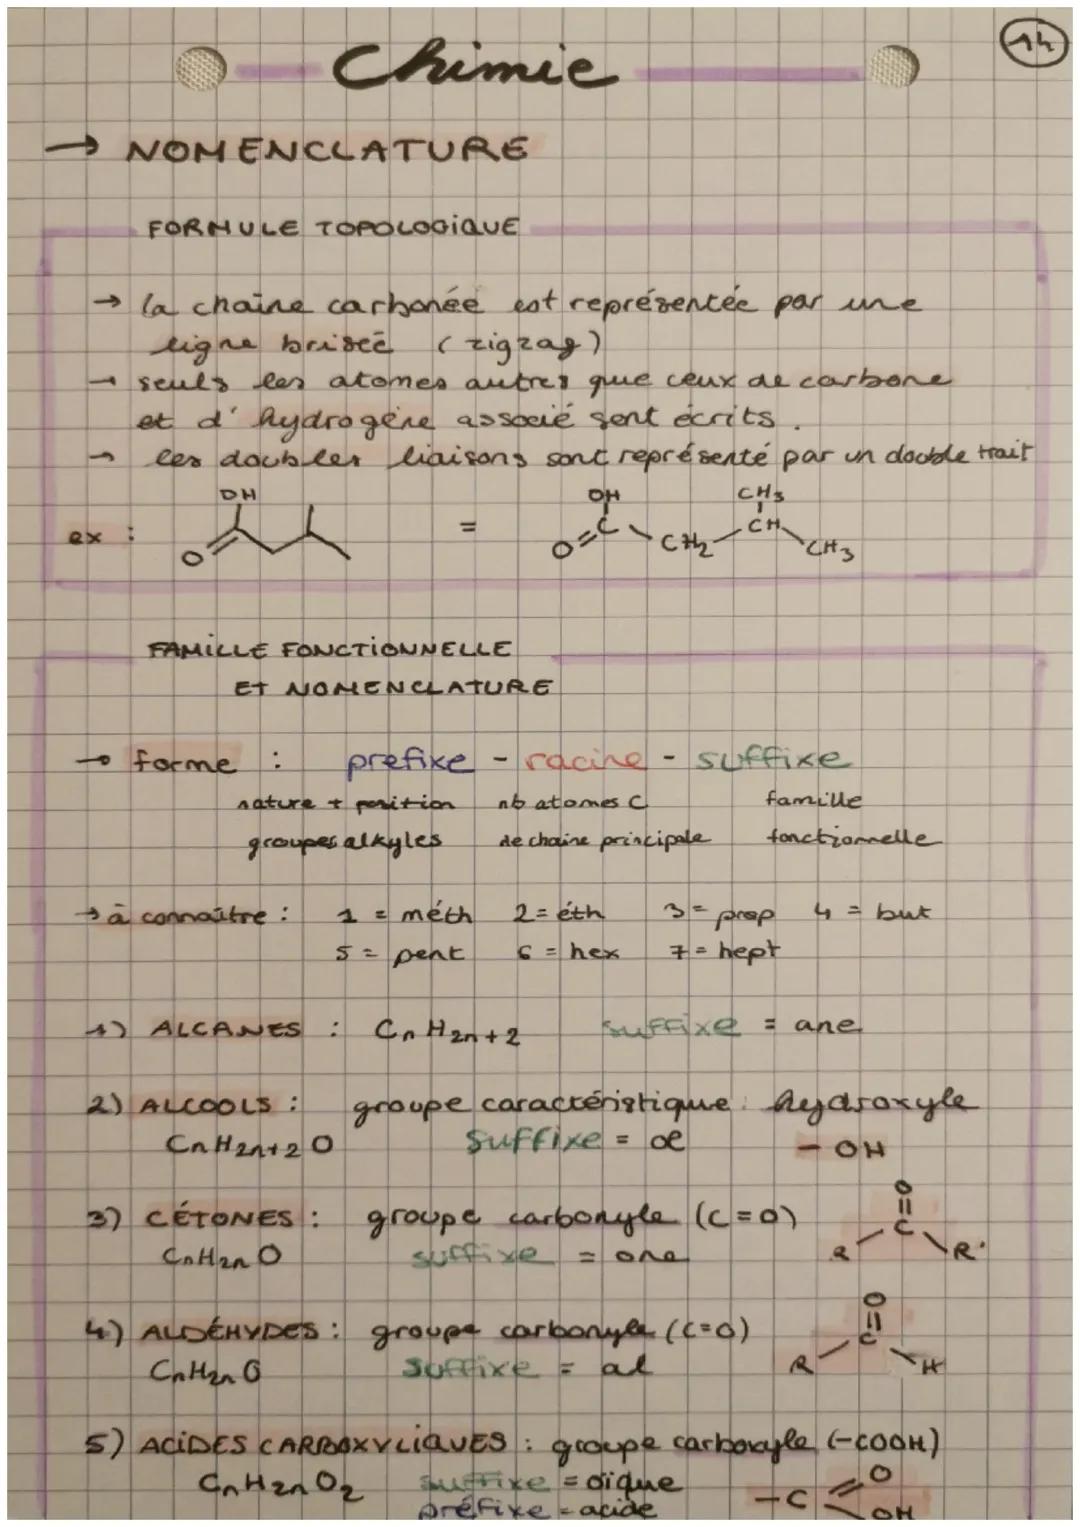 14
Chimie
→ NOMENCLATURE
FORMULE TOPOLOGIQUE
→ la chaîne carbonée est représentée par une
ligne brisée (zigzag)
→ seuls les atomes autres que ceux de carbone
et d'hydrogène associé sont écrits.
→ les doubles liaisons sont représenté par un double trait
ex :
OH
O
=
OH
C
O
CH2
CH3
CH
CH3
FAMILLE FONCTIONNELLE
ET NOMENCLATURE
→ forme : prefixe - racine - suffixe
nature + position nb atomes C famille
groupes alkyles de chaine principale fonctionnelle
→ à connaître : 1 = méth 2 = éth 3 = prop 4 = but
5 = pent 6 = hex 7 = hept
1) ALCANES : CnH2n+2 suffixe = ane
2) ALCOOLS : groupe caractéristique : hydroxyle
CnH2n+2O suffixe = ol - OH
3) CÉTONES : groupe carbonyle (C=O)
CnH2nO suffixe = one
O
C
R R'
4) ALDÉHYDES : groupe carbonyle (C=O)
CnH2nO suffixe = al
O
C
R H
5) ACIDES CARBOXYLIQUES : groupe carboxyle (-COOH)
CnH2nO2 suffixe = oïque
préfixe = acide
-C
O
OH